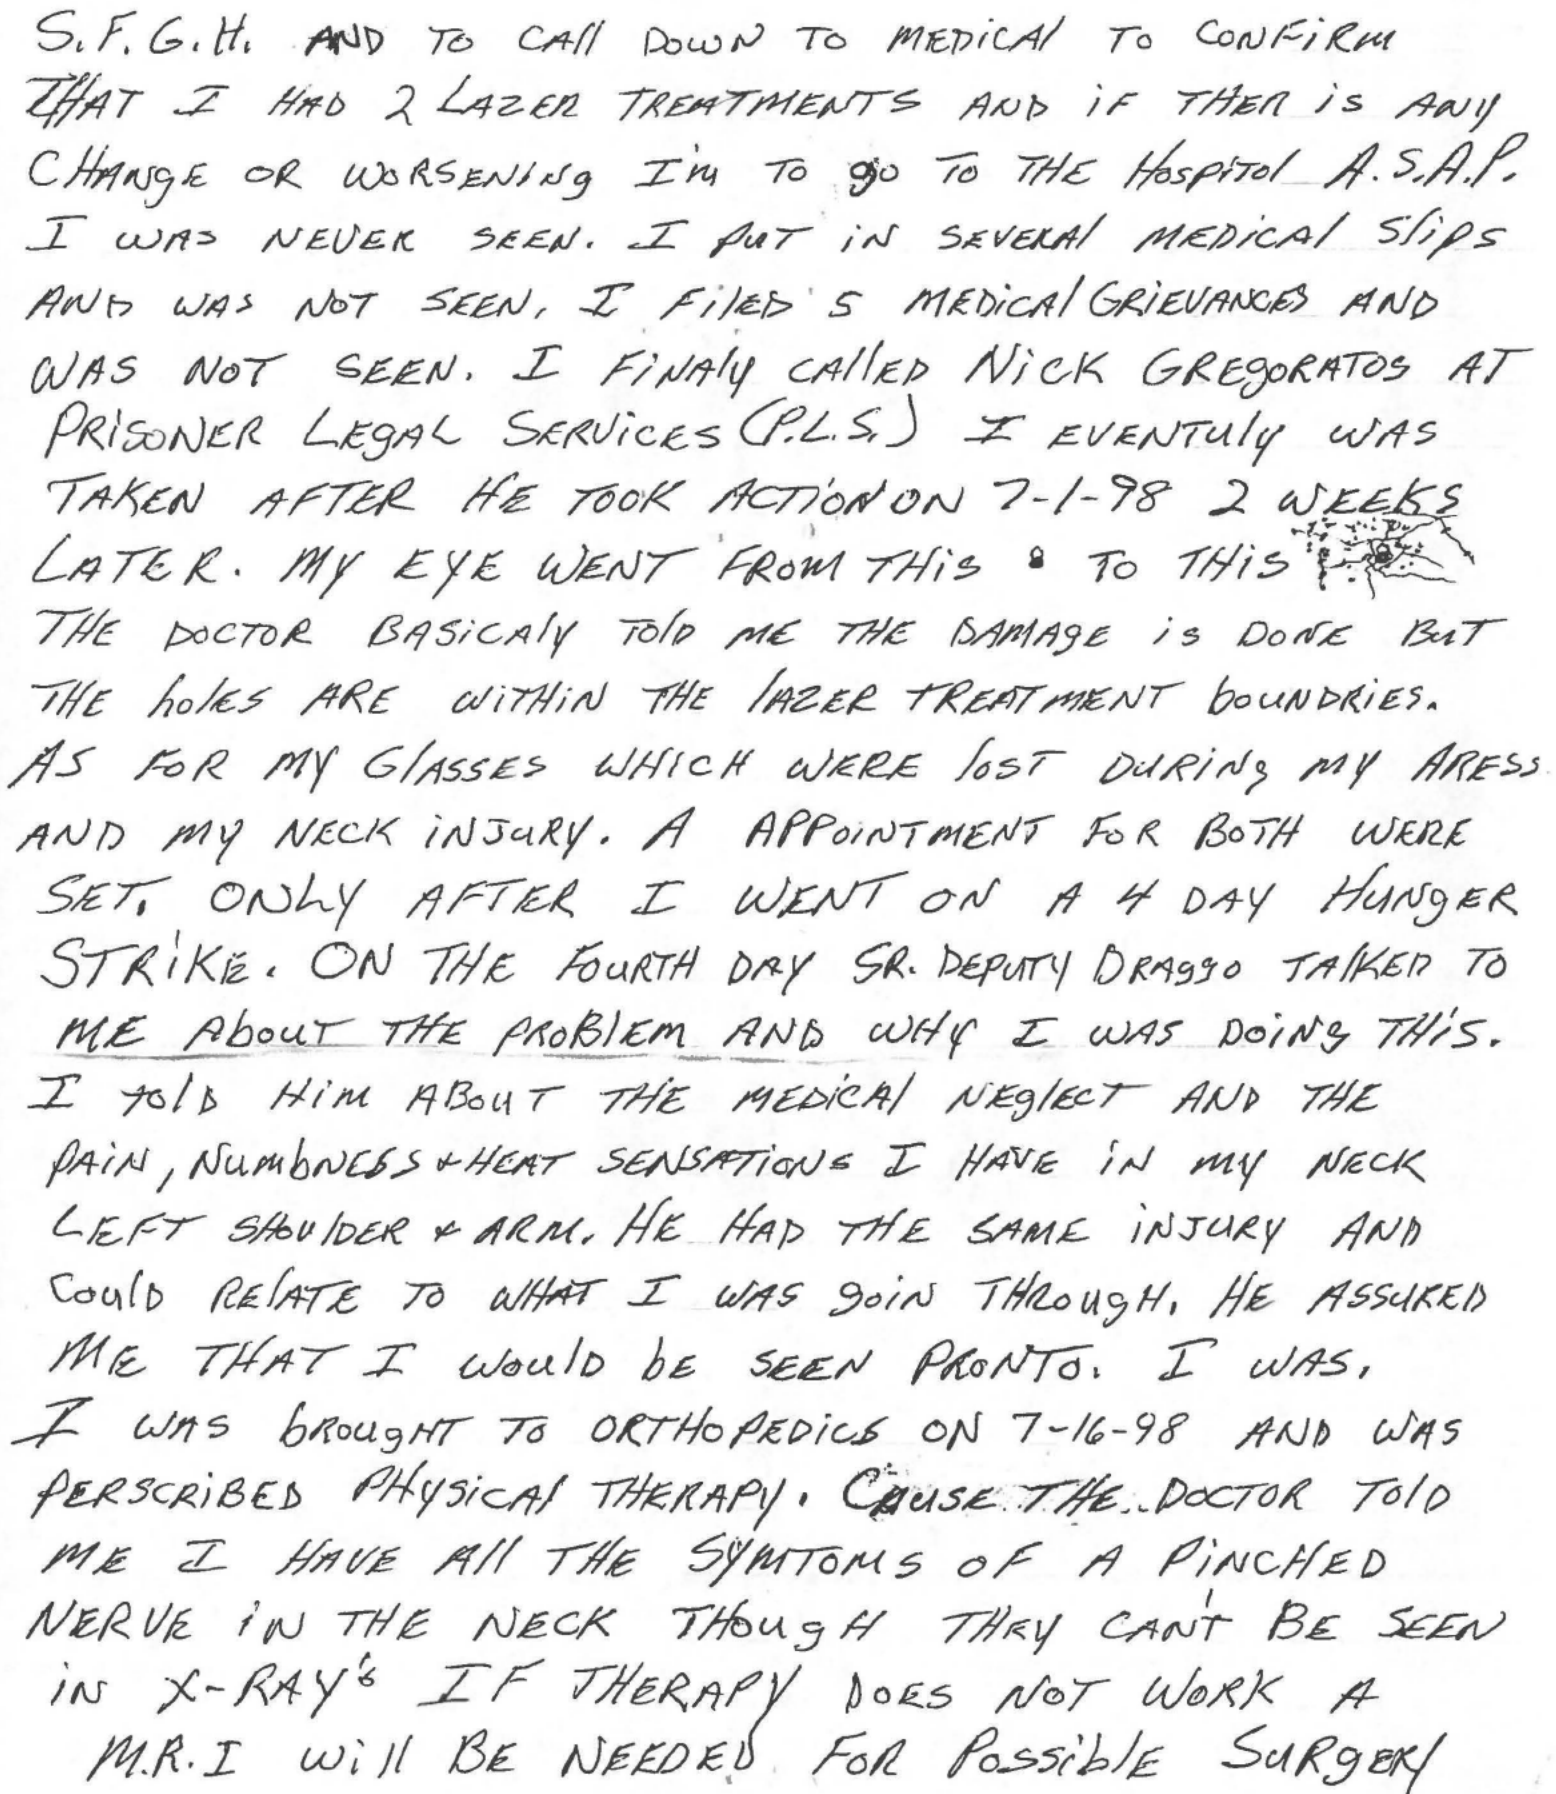 S.F.G.H. AND TO CAll DOWN TO MEDiCAl TO CONFiRM
THAT I HAD 2 LAZER TREATMENTS AND iF THER is ANY
CHANgE OR WORSENiNg I'm TO go TO THE HospiTol A.S.A.P.
I WAS NEVER SEEN. I PuT iN SEVERAl MEDiCAl Slips
AND WAS NOT SEEN. I FilED 5 MEDiCAl GRiEVANCES AND
WAS NOT SEEN. I FiNAly CAllED NiCK GREgORATOS AT
PRiSONER LEgAL SERViCES (P.L.S.) I EVENTUly WAS
TAKEN AFTER HE TOOK ACTiON ON 7-1-98 2 WEEKS
LATER. MY EYE WENT FROM THiS TO THiS
THE DOCTOR BASiCAly TOlD ME THE DAMAgE is DONE BuT
THE holES ARE WiTHiN THE lAZER TREATMENT bOUNDRiES.
AS FOR MY GlASSES WHiCH WERE lOST DURiNg MY ARESS
AND MY NECK iNJuRY. A APPOiNTMENT FOR BOTH WERE
SET. ONLY AFTER I WENT ON A 4 DAY HuNgER
STRiKE. ON THE FOuRTH DAY SR. DEPuTY DRAggO TAlKED TO
ME AbouT THE PROBlEM AND WHY I WAS DOiNg THiS.
I TOlD HiM ABOuT THE MEDiCAl NEglECT AND THE
PAiN, NumbNESS & HEAT SENSATiONS I HAVE iN MY NECK
LEFT SHOUlDER & ARM. HE HAD THE SAME iNJURY AND
CoulD RElATE TO WHAT I WAS goiN THROugH. HE ASSURED
ME THAT I WoulD bE SEEN PRONTO. I WAS.
I WAS bROugHT TO ORTHOPEDiCS ON 7-16-98 AND WAS
PERSCRiBED PHYSiCAl THERAPY. CAuSE THE DOCTOR TOlD
ME I HAVE All THE SYMTOMS OF A PiNCHED
NERVE iN THE NECK THOugH THEY CAN'T BE SEEN
iN X-RAY's IF THERAPY DOES NOT WORK A
M.R.I Will BE NEEDED FOR POSSiblE SuRgERY